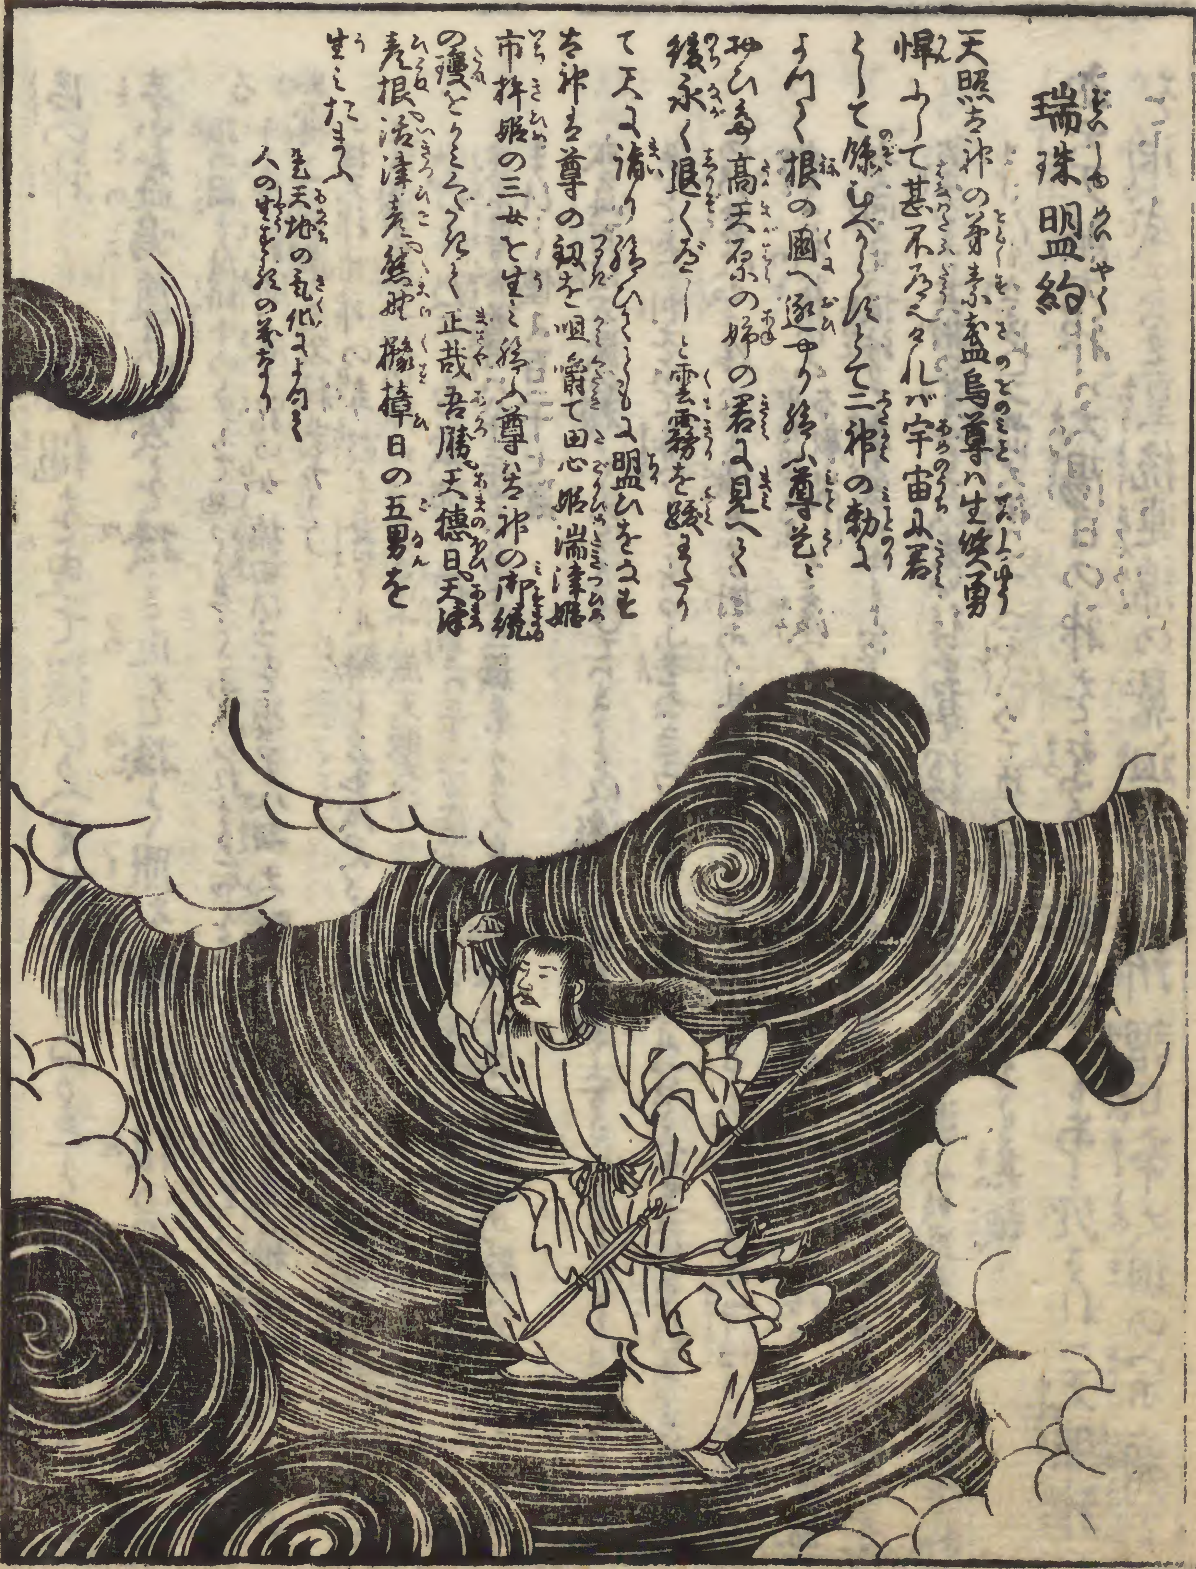 瑞珠盟約
天照太神の弟素盞烏尊ハ生質勇
悍にして甚不道之けれバ宇宙に君
として臨むべからずとて二神の勅に
よりて根の國へ逐やり給ふ尊先
高天原の姉の君に見へて
後永く退くべしと雲霧を踐わたり
て天に詣り給ひともに盟ひをなし
太神は尊の釼を咀嚼て田心姫湍津姫
市杵姫の三女を生ミ給ふ尊ハ太神の御統
の瓊をかミくだきて正哉吾勝天穂日天津
彦根活津彦熊野櫲樟日の五男を
生ミたまふ
是天地の氣化によつて
人の生ずる